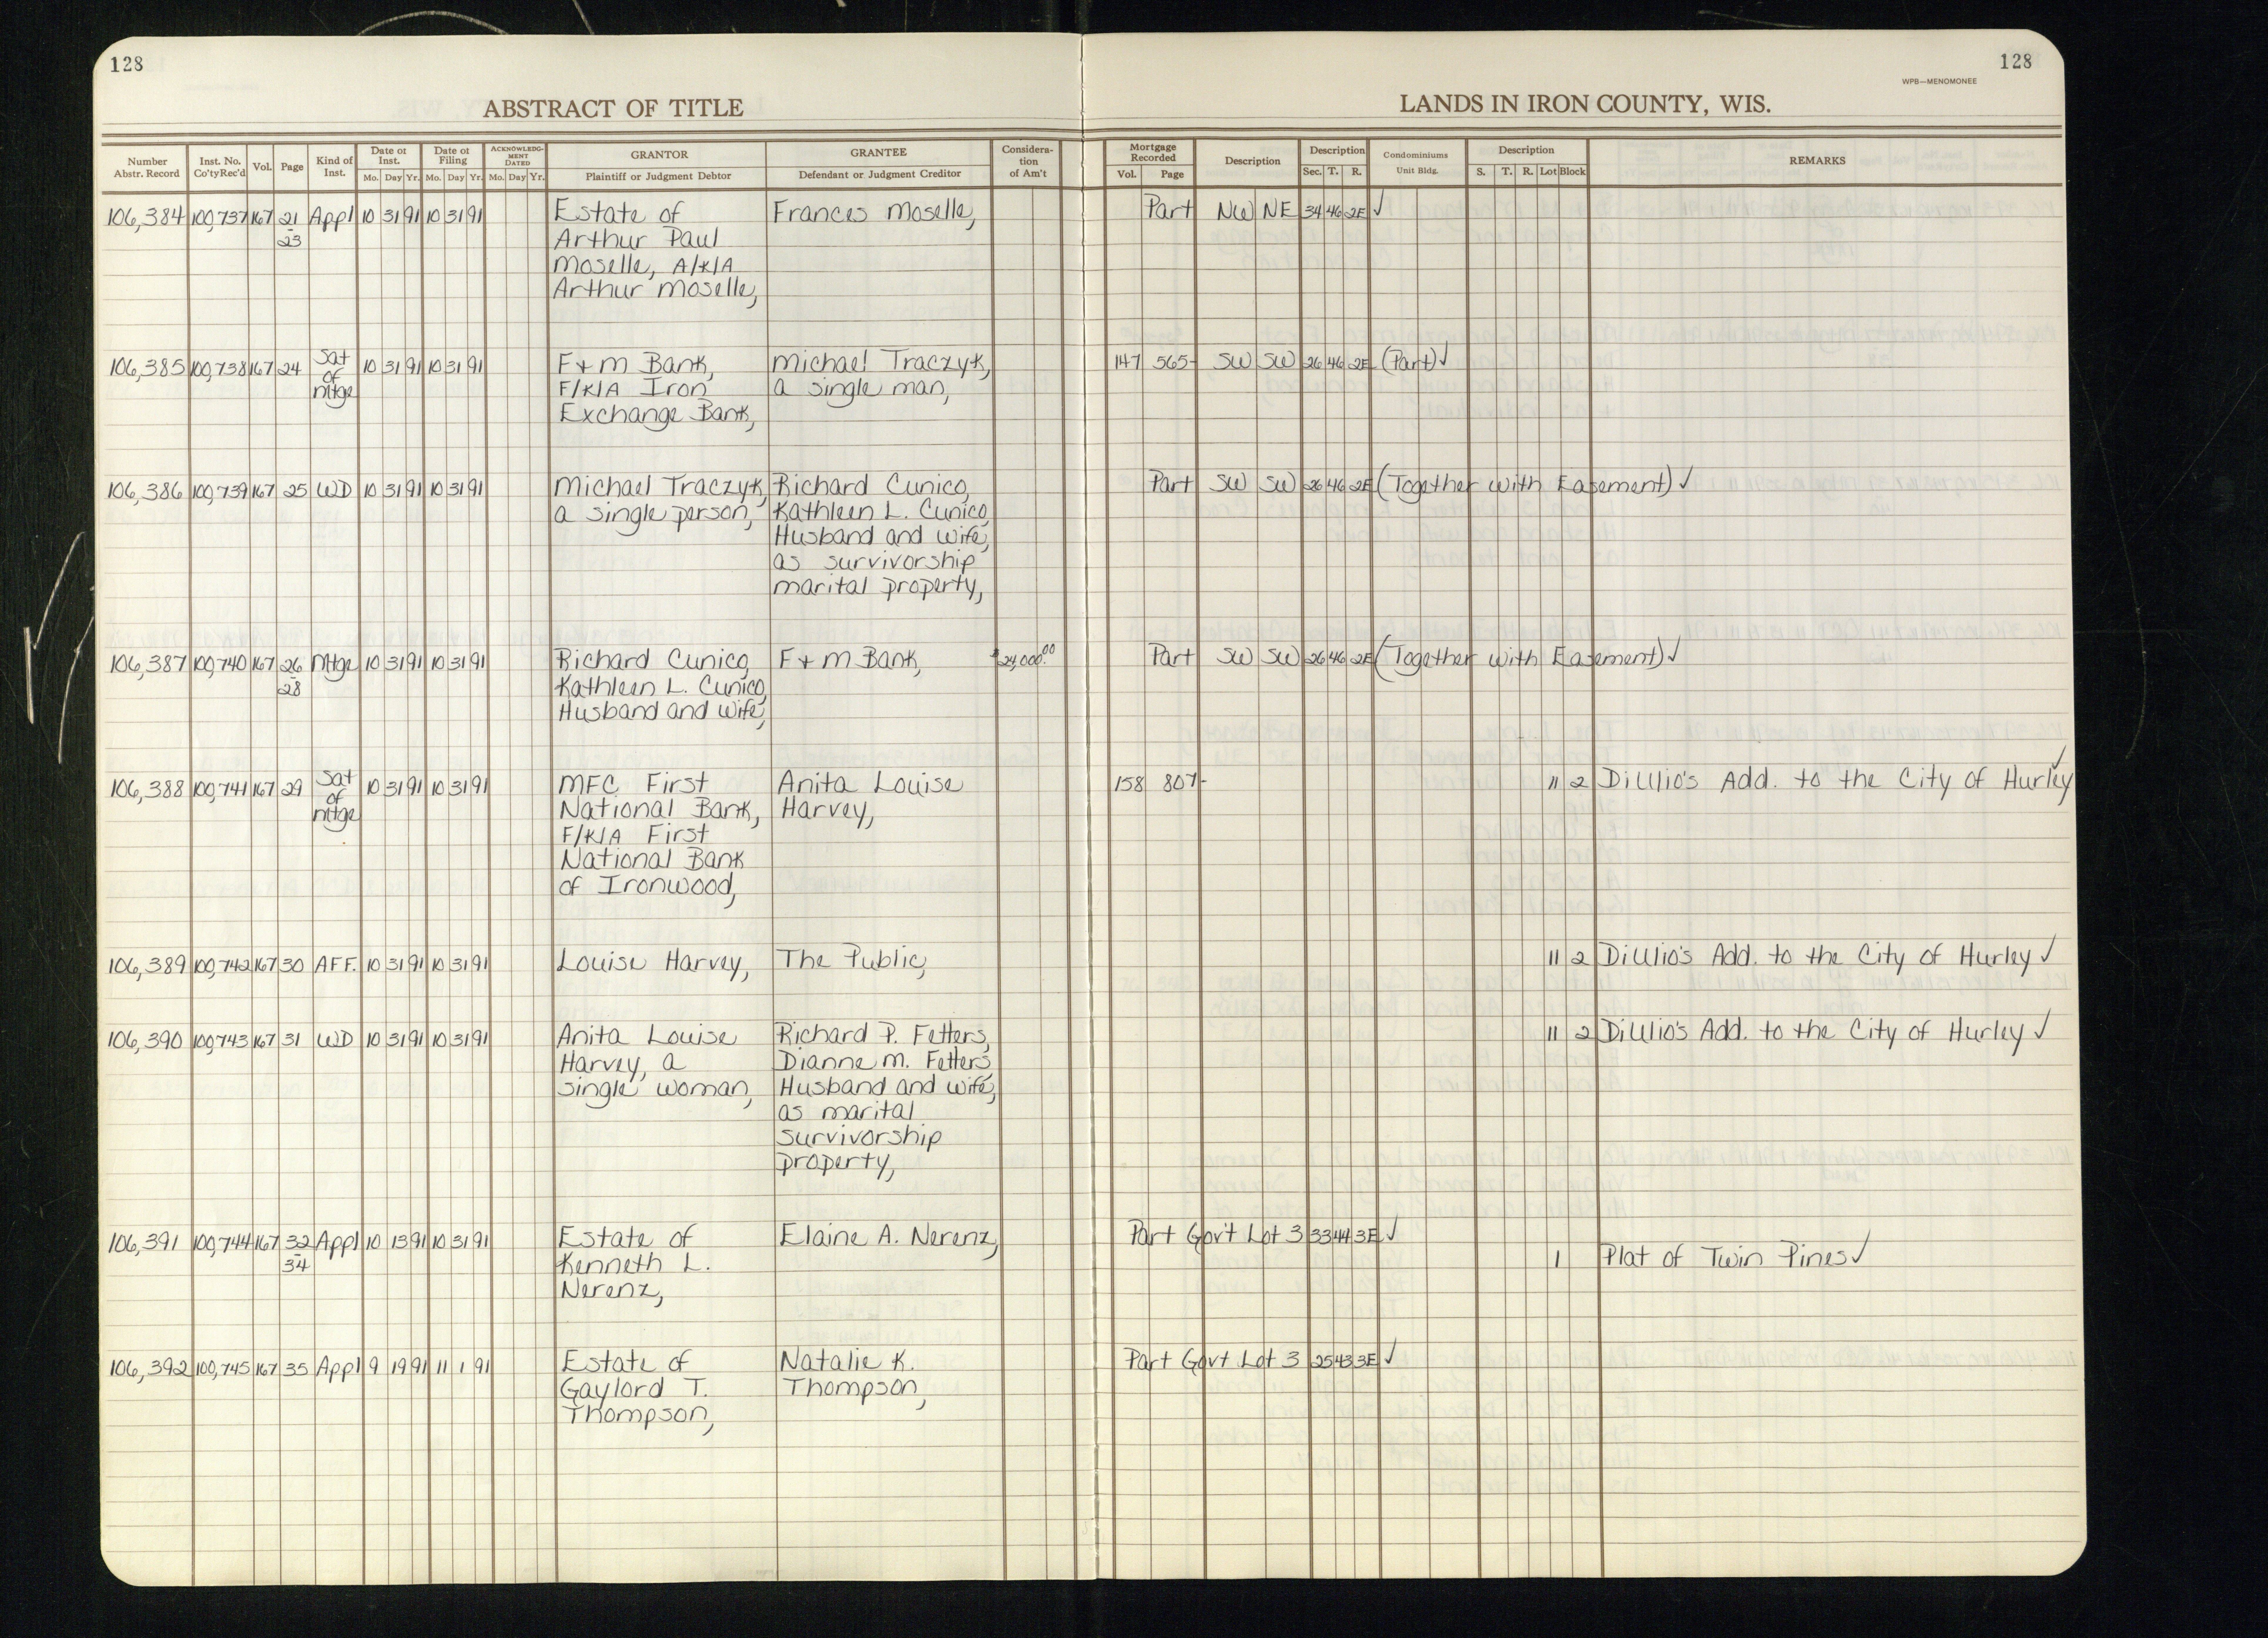 128
128
WPB—MENOMONEE
ABSTRACT OF TITLE
LANDS IN IRON COUNTY, WIS.
Number Abstr. Record | Inst. No. Co'ty Rec'd | Vol. | Page | Kind of Inst. | Date of Inst. Mo. Day Yr. | Date of Filing Mo. Day Yr. | ACKNOWLEDGMENT DATED Mo. Day Yr. | GRANTOR Plaintiff or Judgment Debtor | GRANTEE Defendant or Judgment Creditor | Consideration of Am't | Mortgage Recorded Vol. Page | Description | Description Sec. T. R. | Condominiums Unit Bldg. | Description S. T. R. Lot Block | REMARKS
106,384 100,737 167 21 Appl 10 31 91 10 31 91 Estate of Frances Moselle, Part NW NE 34 46 2E ✓
- 23 Arthur Paul
Moselle, A/K/A
Arthur Moselle,
106,385 100,738 167 24 Sat of Mtge 10 31 91 10 31 91 F + M Bank, Michael Traczyk, 147 565- SW SW 26 46 2E (Part) ✓
F/K/A Iron a single man,
Exchange Bank,
106,386 100,739 167 25 WD 10 31 91 10 31 91 Michael Traczyk, Richard Cunico, Part SW SW 26 46 2E (Together with Easement) ✓
a single person, Kathleen L. Cunico,
Husband and Wife,
as survivorship
marital property,
106,387 100,740 167 26 Mtge 10 31 91 10 31 91 Richard Cunico, F + M Bank, $24,000.00 Part SW SW 26 46 2E (Together with Easement) ✓
- 28 Kathleen L. Cunico,
Husband and Wife,
106,388 100,741 167 29 Sat of Mtge 10 31 91 10 31 91 MFC First Anita Louise 158 807- 11 2 DiUlio's Add. to the City of Hurley ✓
National Bank, Harvey,
F/K/A First
National Bank
of Ironwood,
106,389 100,742 167 30 AFF. 10 31 91 10 31 91 Louise Harvey, The Public, 11 2 DiUlio's Add. to the City of Hurley ✓
106,390 100,743 167 31 WD 10 31 91 10 31 91 Anita Louise Richard P. Fetters, 11 2 DiUlio's Add. to the City of Hurley ✓
Harvey, a Dianne M. Fetters,
single woman, Husband and Wife,
as marital
survivorship
property,
106,391 100,744 167 32 Appl 10 13 91 10 31 91 Estate of Elaine A. Nerenz, Part Gov't Lot 3 33 44 3E ✓
- 34 Kenneth L. 1 Plat of Twin Pines ✓
Nerenz,
106,392 100,745 167 35 Appl 9 19 91 11 1 91 Estate of Natalie K. Part Gov't Lot 3 25 43 3E ✓
Gaylord T. Thompson,
Thompson,